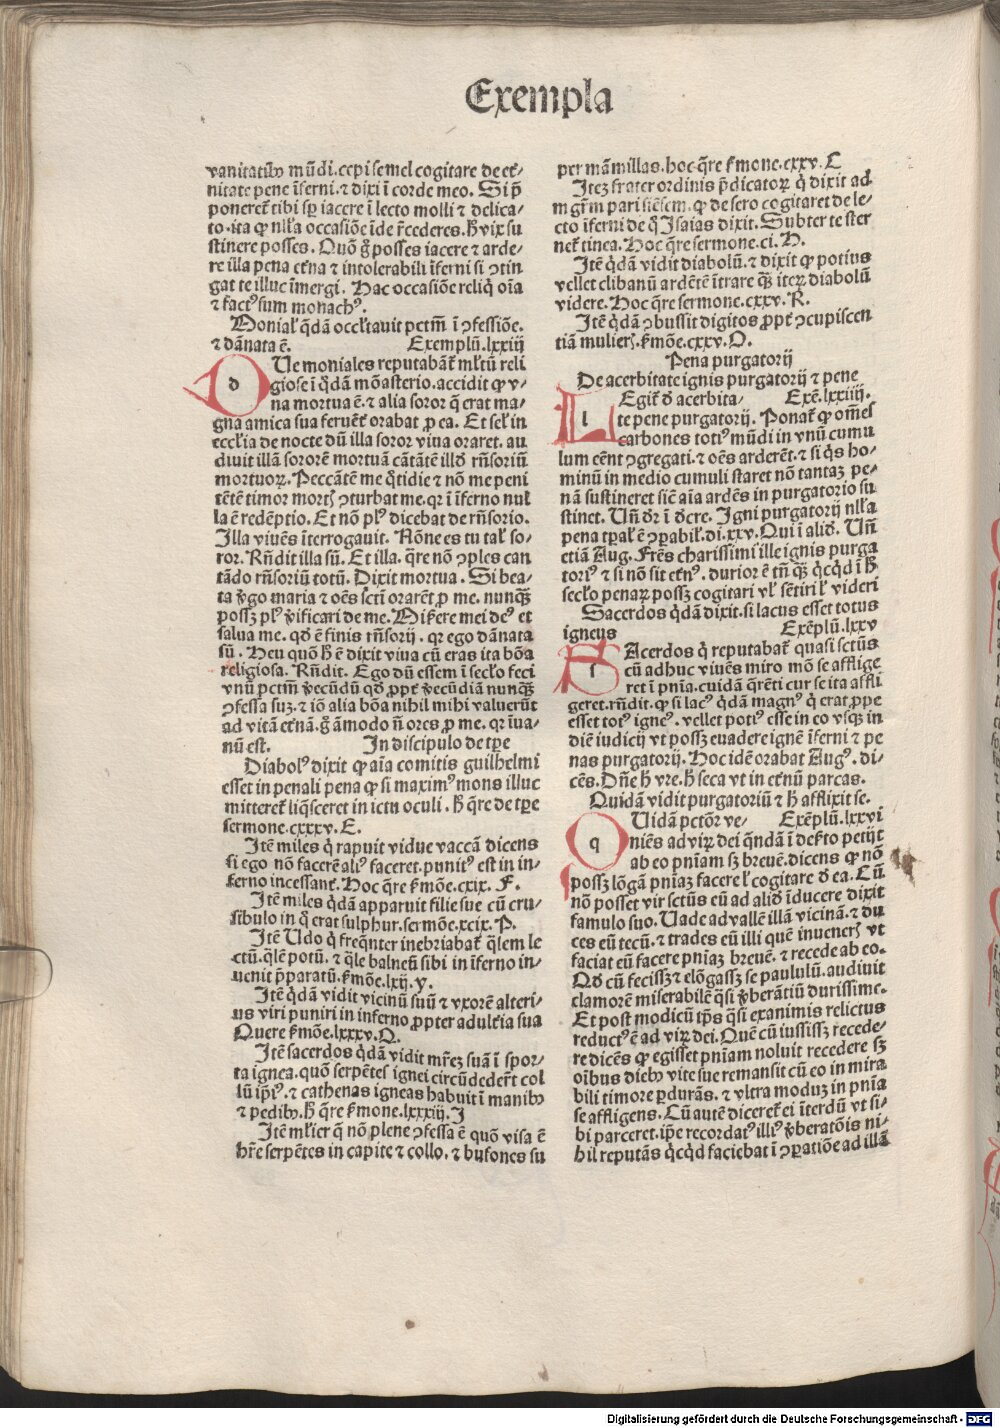 Exempla
vanitatibꝰ mūdi.cepi semel cogitare de eter̄
nitate pene īferni.⁊ dixi ī corde meo. Si p̄
poneret̄ tibi sꝑ iacere ī lecto molli ⁊ delica-
to.ita ꝙ nll'a occasiōe īde r̄cederes.h̄ vix su
stinere posses. Quō g̊ posses iacere ⁊ arde-
re illa pena et̄na ⁊ intolerabili īferni si ↄtin
gat te illuc īmergi. Hac occasiōe reliq̄ oīa
⁊ factꝰ sum monachꝰ.
Monial' q̄dā occl'tauit pctm̄ ī ↄfessiōe.
⁊ dānata ē. Exemplū.lxxiij
dUe moniales reputabāt ml'tū reli
giose ī q̄dā mōasterio.accidit ꝙ v-
na mortua ē.⁊ alia soror q̄ erat ma-
gna amica sua feruēt̄ orabat ꝓ ea. Et sel' in
eccl'ia de nocte dū illa soror viua oraret.au
diuit illā sororē mortuā cātātē illd̄ rn̄soriū
mortuoꝝ. Peccātē me q̄tidie ⁊ nō me peni
tētē timor mortꝭ ↄturbat me.qꝛ ī īferno nul
la ē redēptio. Et nō plꝰ dicebat de rn̄sorio.
Illa viuēs īterrogauit. Nōne es tu tal' so-
ror. Rn̄dit illa sū. Et illa. q̄re nō ↄples can
tādo rn̄soriū totū. Dixit mortua. Si bea-
ta v̄go maria ⁊ oēs scti orarēt ꝓ me.nunqꝫ̄
possꝫ plꝰ v̄ificari de me. Miserere mei deꝰ et
salua me.qd̄ ē finis rn̄sorij.qꝛ ego dānata
sū. Heu quō h̄ ē dixit viua cū eras ita bōa
religiosa. Rn̄dit. Ego dū essem ī secl'o feci
vnū pctm̄ v̄ecūdū qd̄ ꝓpt̄ v̄ecūdiā nunqꝫ̄
ↄfessa suꝫ.⁊ iō alia bōa nihil mihi valuerūt
ad vitā et̄nā.g̊ āmodo n̄ ores ꝓ me.qꝛ īua-
nū est. In discipulo de tꝑe
Diabolꝰ dixit ꝙ aīa comitis guilhelmi
esset in penali pena ꝙ si maximꝰ mons illuc
mitteret̄ liq̄sceret in ictu oculi. h̄ q̄re de tꝑe
sermone.cxxxv.E.
Itē miles q̄ rapuit vidue vaccā dicens
si ego nō facerē aliꝰ faceret.punitꝰ est in in-
ferno incessant̄. Hoc q̄re s̄mōe.cxix. F.
Itē miles q̄dā apparuit filie sue cū cru-
sibulo in q̄ erat sulphur.sermōe.xcix.P.
Itē Udo q̄ freq̄nter inebriabat̄ q̄lem le
ctū.q̄lē potū.⁊ q̄le balneū sibi in īferno in-
uenit p̄paratū.s̄mōe.lxij.y.
Itē q̄dā vidit vicinū suū ⁊ vxorē alteri-
us viri puniri in inferno ꝓpter adult̄ia sua
Quere s̄mōe.lxxxv.Q.
Itē sacerdos q̄dā vidit mr̄eꝫ suā ī spor-
ta ignea.quō serpētes ignei circūdeder̄t col
lū ip̄iꝰ.⁊ cathenas igneas habuit ī manibꝰ
⁊ pedibꝰ.h̄ q̄re s̄mone.lxxxiij.I
Itē ml'ier q̄ nō plene ↄfessa ē quō visa ē
hr̄e serpētes in capite ⁊ collo.⁊ bufones su
per māmillas.hoc q̄re s̄mone.cxxv.C
Iteꝫ frater ordinis p̄dicatoꝝ q̄ dixit ad
mgr̄m parisiēsem.ꝙ de sero cogitaret de le-
cto īferni de q̊ Isaias dixit. Subter te ster
net̄ tinea. Hoc q̄re sermone.ci.H.
Itē q̄dā vidit diabolū.⁊ dixit ꝙ potius
vellet clibanū ardētē ītrare qꝫ̄ iteꝝ diabolū
videre. Hoc q̄re sermone.cxxv.R.
Itē q̄dā ↄbussit digitos ꝓpt̄ ↄcupiscen
tiā mulierꝭ.s̄mōe.cxxv.O.
Pena purgatorij
De acerbitate ignis purgatorij ⁊ pene
lEgit̄ d̄ acerbita- Exē.lxxiiij.
te pene purgatorij. Ponat̄ ꝙ om̄es
carbones totiꝰ mūdi in vnū cumu
lum eēnt ↄgregati.⁊ oēs arderēt.⁊ si q̄s ho-
minū in medio cumuli staret nō tantaꝫ pe-
nā sustineret sicē aīa ardēs in purgatorio su
stinet. Un̄ dr̄ ī dc̄re. Igni purgatorij nll'a
pena tꝑal' ē ↄparabil'.di.xxv.Qui ī aliō. Un̄
etiā Aug. Fr̄es charissimi ille ignis purga
toriꝰ ⁊ si nō sit et̄nꝰ.durior ē tn̄ qꝫ̄ q̄cq̄d ī h̄
secl'o penaꝝ possꝫ cogitari vl' sētiri l' videri
Sacerdos q̄dā dixit.si lacus esset totus
igneus Exēplū.lxxv
sAcerdos q̄ reputabat̄ quasi sctūs
cū adhuc viuēs miro mō se afflige
ret ī pn̄ia.cuidā q̄rēti cur se ita affli
geret.rn̄dit.ꝙ si lacꝰ q̄dā magnꝰ q̄ erat ꝓpe
esset totꝰ igneꝰ.vellet potiꝰ esse in eo vsqꝫ in
diē iudicij vt possꝫ euadere ignē īferni ⁊ pe
nas purgatorij. Hoc idē orabat Augꝰ.di-
cēs. Dn̄e h̄ vre.h̄ seca vt in et̄nū parcas.
Quidā vidit purgatoriū ⁊ h̄ afflixit se.
qUidā pctōr ve- Exēplū.lxxvi
niēs ad viꝝ dei q̄ndā ī dese̅rto petijt
ab eo pn̄iam sꝫ breuē.dicens ꝙ nō
possꝫ lōgā pn̄iaꝫ facere l' cogitare d̄ ea. Cū
nō posset vir sctūs eū ad aliō īducere dixit
famulo suo. Uade ad vallē illā vicinā.⁊ du
ces eū tecū.⁊ trades eū illi quē inuenerꝭ vt
faciat eū facere pn̄iaꝫ breuē.⁊ recede ab eo.
Qd̄ cū fecissꝫ ⁊ elōgassꝫ se paululū.audiuit
clamorē miserabilē q̄si v̄berātiū durissime.
Et post modicū tp̄s q̄si exanimis relictus
reductꝰ ē ad viꝝ dei. Quē cū iussissꝫ recede-
re dicēs ꝙ egisset pn̄iam noluit recedere sꝫ
oībus diebꝰ vite sue remansit cū eo in mira
bili timore ꝑdurās.⁊ vltra moduꝫ in pn̄ia
se affligens. Cū autē diceret̄ ei īterdū vt si-
bi parceret.ip̄e recordatꝰ illiꝰ v̄beratōis ni-
hil reputās q̄cq̄d faciebat ī ↄparatiōe ad illā
Digitalisierung gefördert durch die Deutsche Forschungsgemeinschaft - DFG